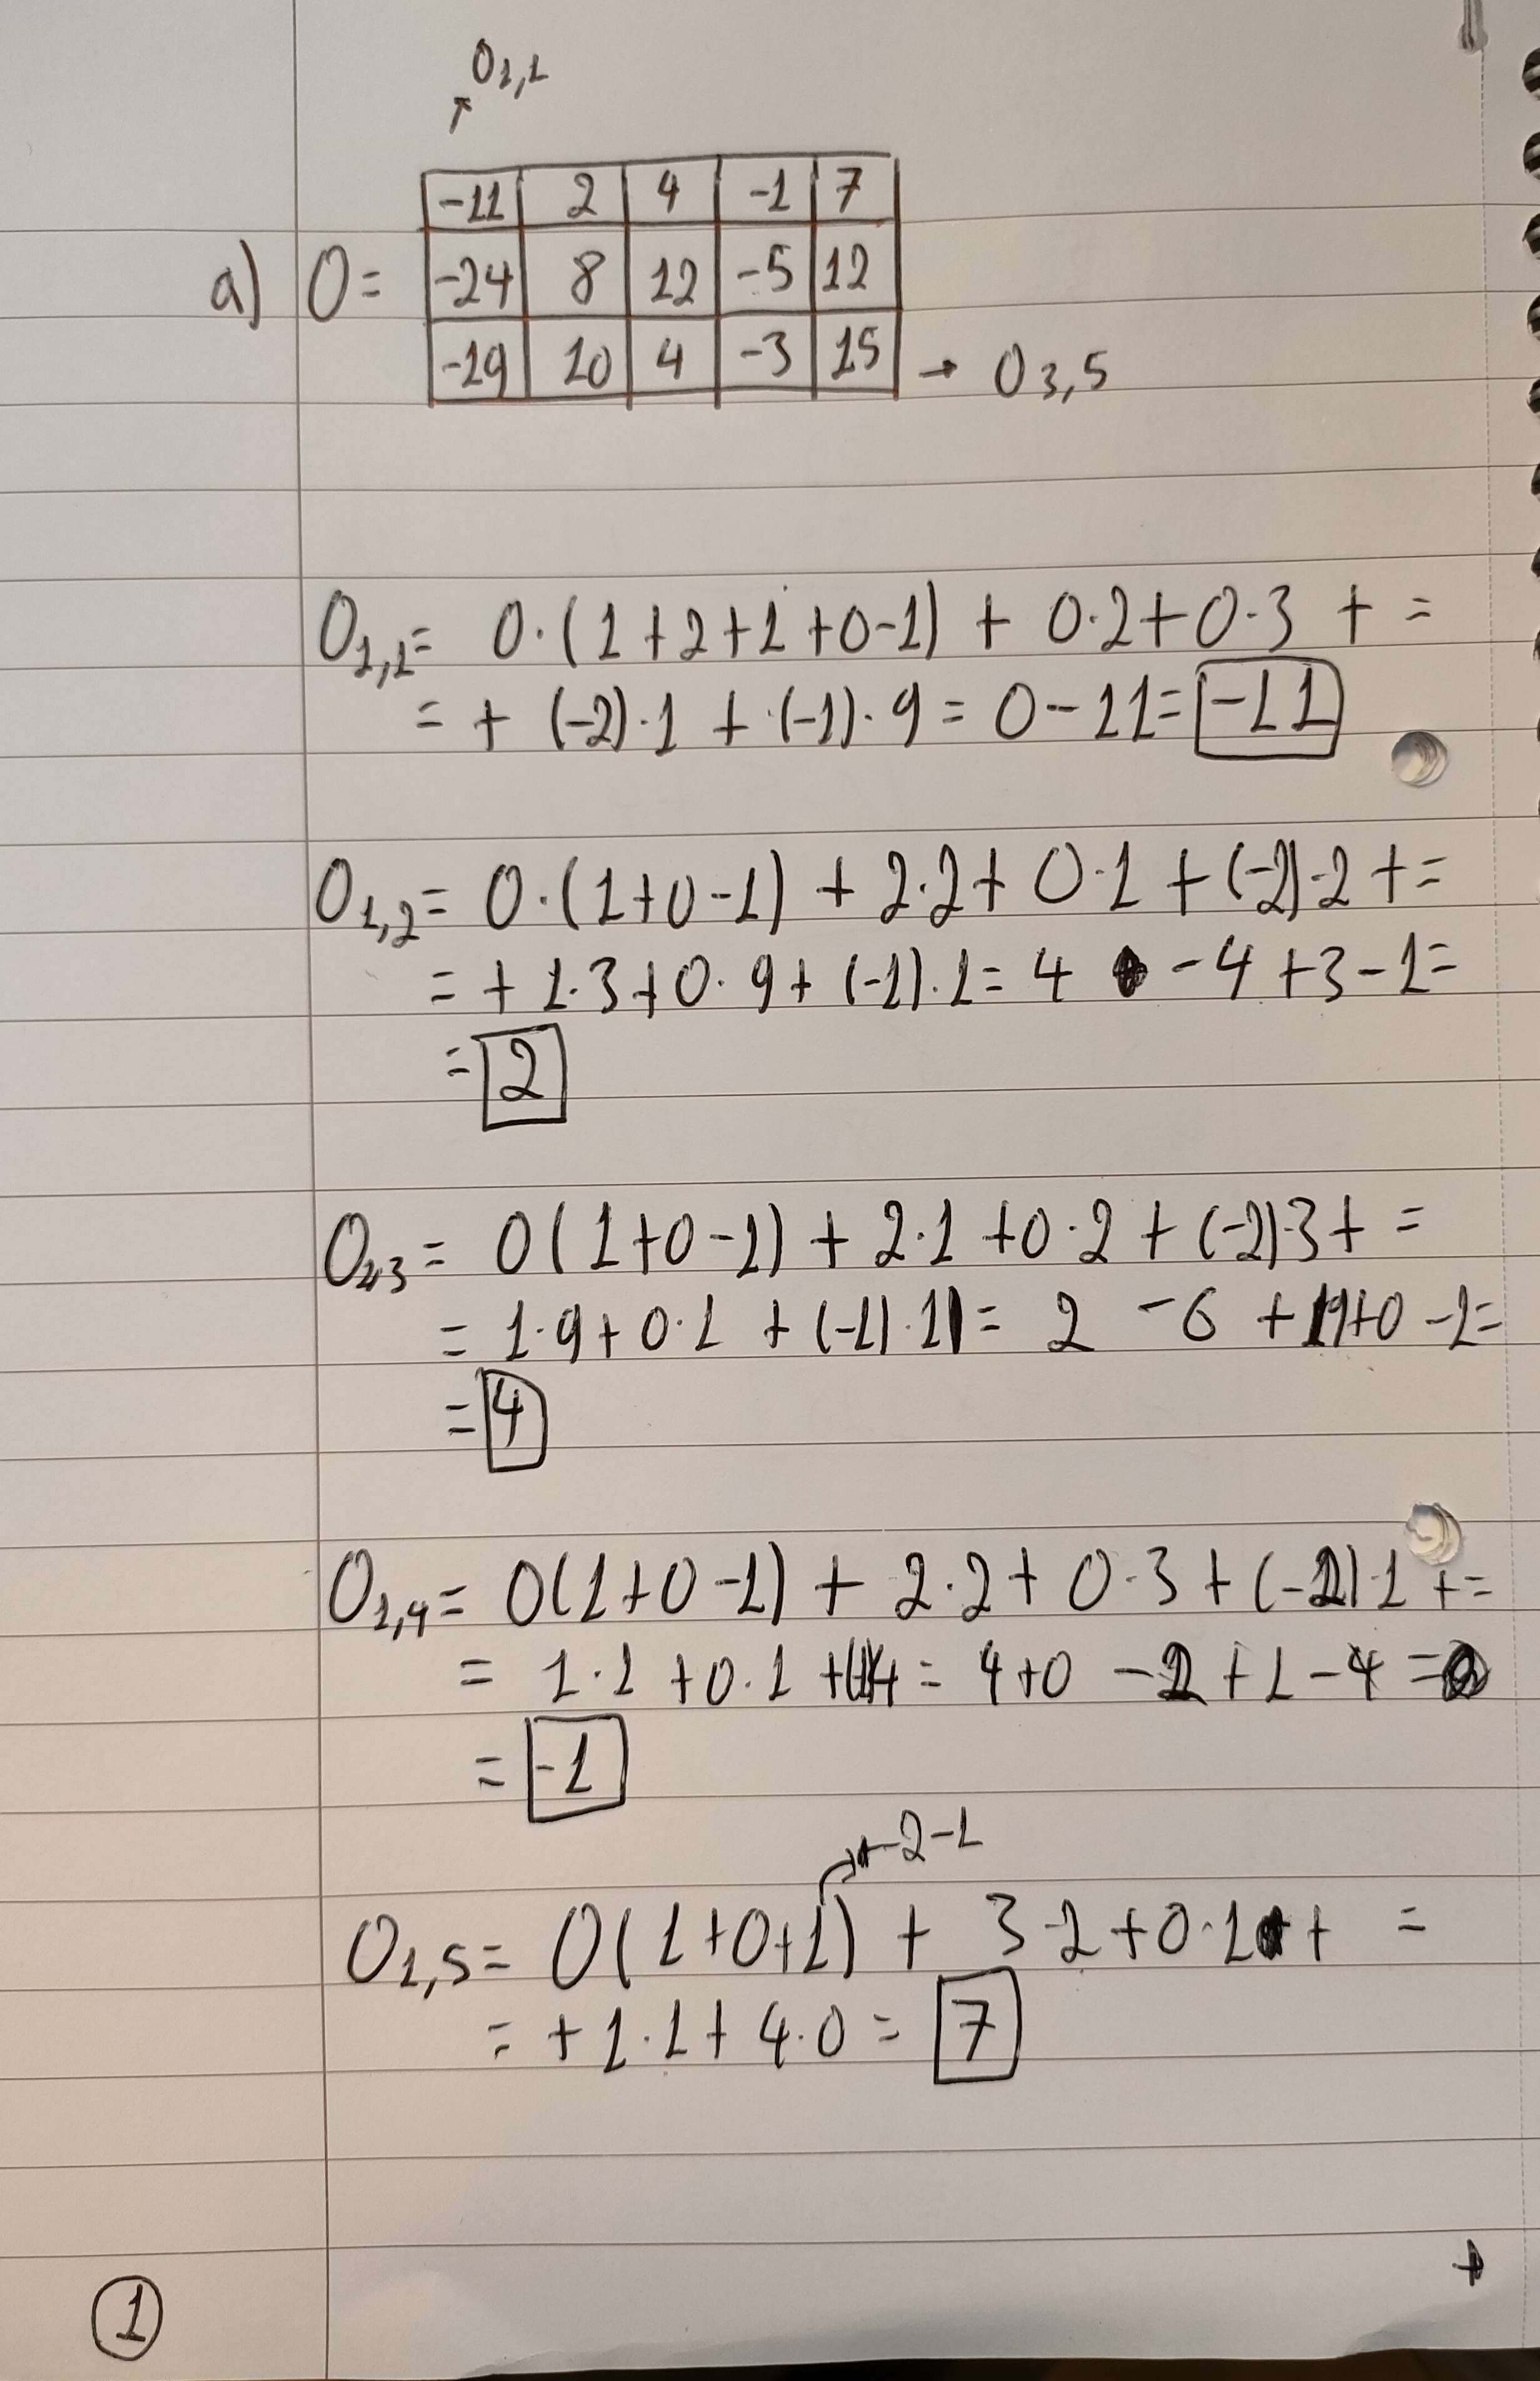 O1,1
-11 2 4 -1 7
a) O= -24 8 12 -5 12
-19 10 4 -3 15 → O3,5
O1,1= 0·(1+2+1+0-1) + 0·2+0·3 + =
= + (-2)·1 + (-1)·9 = 0-11= -11
O1,2= 0·(1+0-1) + 2·2+ 0·1 + (-2)·2 + =
= + 1·3+0·9+ (-1)·1= 4 -4 +3-1=
= 2
O1,3= 0(1+0-1) + 2·1 +0·2 + (-2)3+ =
= 1·9+0·1 + (-1)·1= 2 -6 +9+0 -1=
= 4
O1,4= 0(1+0-1) + 2·2+ 0·3+(-2)·1 + =
= 1·1 +0·1 + = 4+0 -2+1-4 =
= -1
-2-1
O1,5= 0(1+0+1) + 3·2+0·1 + =
= +1·1+ 4·0= 7
1